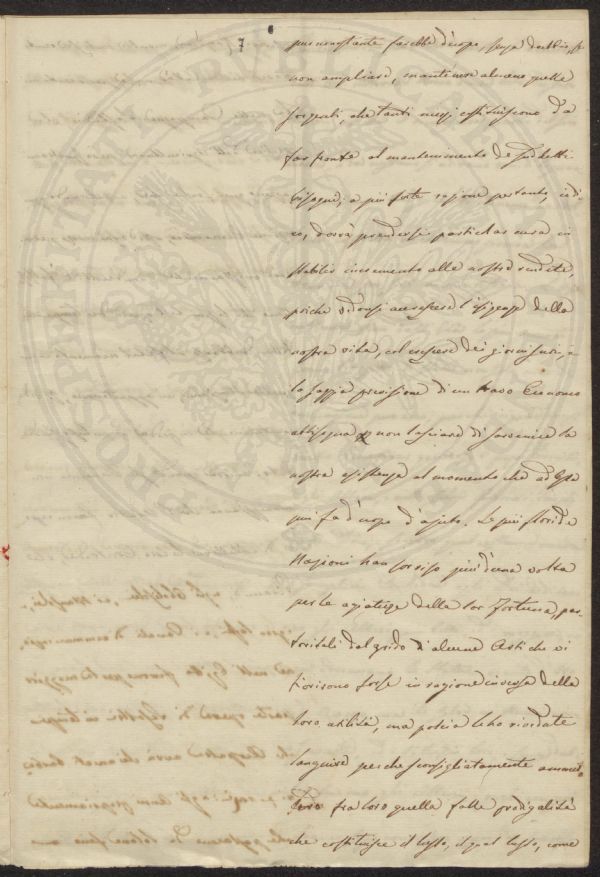 7
pur nonostante sarebbe d'uopo, senza dubbio, se
non ampliare, mantenere alcune quelle
sorgenti, che tanti mezzi costituiscono da
far fronte al mantenimento de' suddetti
bisogni; a più forte ragione pertanto, io di-
co, dovrà prendersi particolar cura in
stabilir incremento alle nostre rendite,
poiché vedonsi accrescere l'esigenze della
nostra vita, col crescere dei giorni suoi, e
la saggia previsione di un bravo Economo
non lasciare di sovvenire la
nostra esistenza al momento che ad essa
più fa d'uopo d'ajuto. Le più floride
Nazioni han sorriso più d'una volta
per le agiatezze della lor Fortuna, por-
tavitali dal grido d'alcune Arti che vi
fiorirono forse in ragione inversa della
loro utilità, ma poscia le ho ricordate
languire perche sconsigliatamente
fra loro quella folle prodigalità
che costituisce il lusso, il qual lusso, come